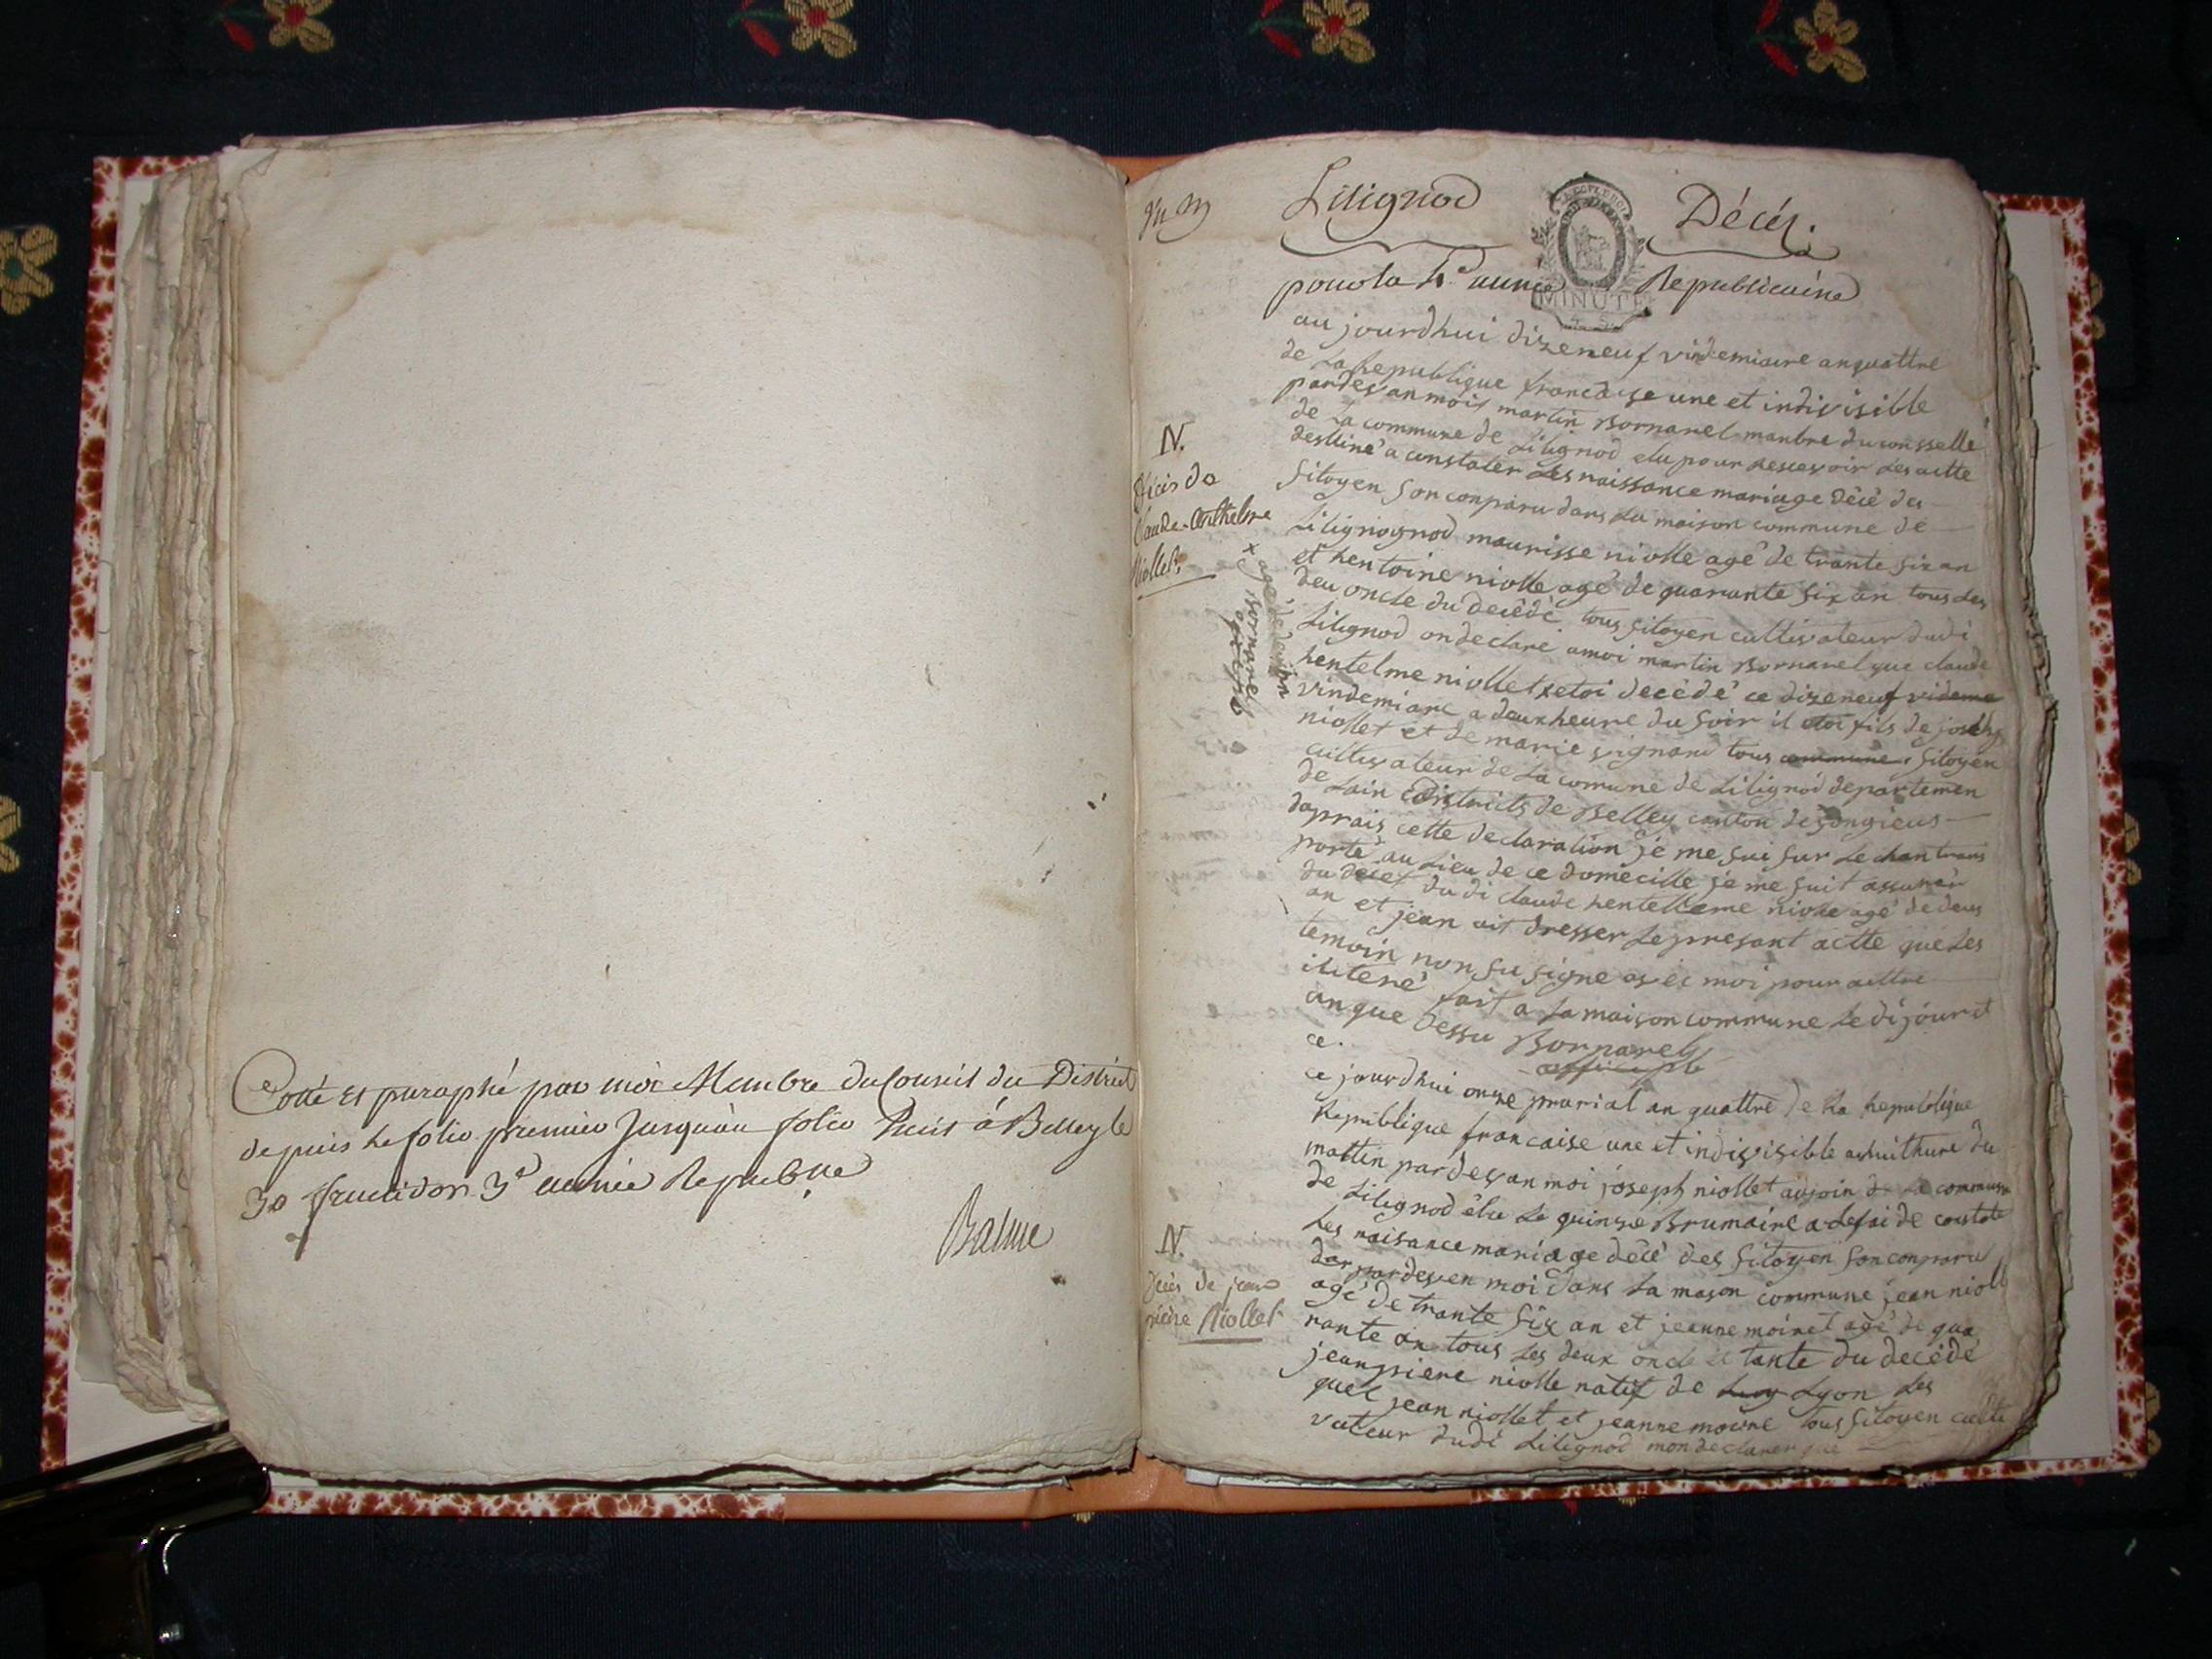 Cotté et paraphé par moi Membre du Conseil du District
depuis le folio premier Jusqu'au folio à Belley le
30 fructidor 3e année Republne
Balme
Lilignod
Décés.
MINUTE
pour la 4e année Republicaine
au jourdhui dizeneuf vindemiaire an quattre
de La Republique francaise une et indivisible
pardevan mois martin Bornarel manbre du consselle
de La commune de Lilignod elu pour ressevoir Les actte
destiné a constater Les naissance mariage décé des
sitoyen son conparu dans La maison commune de
Lilignognod maurisse niolle agé de trante six an
et hentoine niolle agé de quarante six an tous Les
deu oncle du decédé tous sitoyen cultivateur dudi
Lilignod on declaré a moi martin Bornarel que claude
hentelme niollet x etoi decédé ce dizeneuf videme
vindemiare a deux heure du soir il etoi fils de joseph
niollet et de marie vignand tous commune sitoyen
cultivateur de La comune de Lilignod departemen
de Lain districts de Belley canton de songieus
daprais cette declaration je me sui sur Le chan trans
porté au Lieu de ce domecille je me suit assurer
du décet du di claude hentelleme niolle agé de deus
an et jean ait dresser Le presant actte que Les
temoin non su signe avéc moi pour aittre
iliteré fait a La maison commune Le di jour et
an que dessu Bornarel
x agé de deux an
Bornarel
N.
Décès de
Claude-Anthelme
Niollet.
ce.
ce jourdhui onze prarial an quattre de La Republique
Republique francaise une et indivisible a huithure du
mattin par devan moi joseph niollet adjoin de La commune
de Lilignod élu Le quinze Brumaire a Lefai de constate
Les naisance mariage décé des sitoyen son conparu
par deven moi dans La mason commune jean nioll
agé de trante six an et jeanne moinet agé de qua
rante an tous Les deux oncle et tante du decédé
jeanpiere niolle natif de Lyon Les
quel jean niollet et jeanne moine tous sitoyen culti
vateur dudi Lilignod mon declarer que
N.
Décès de jean
pierre Niollet